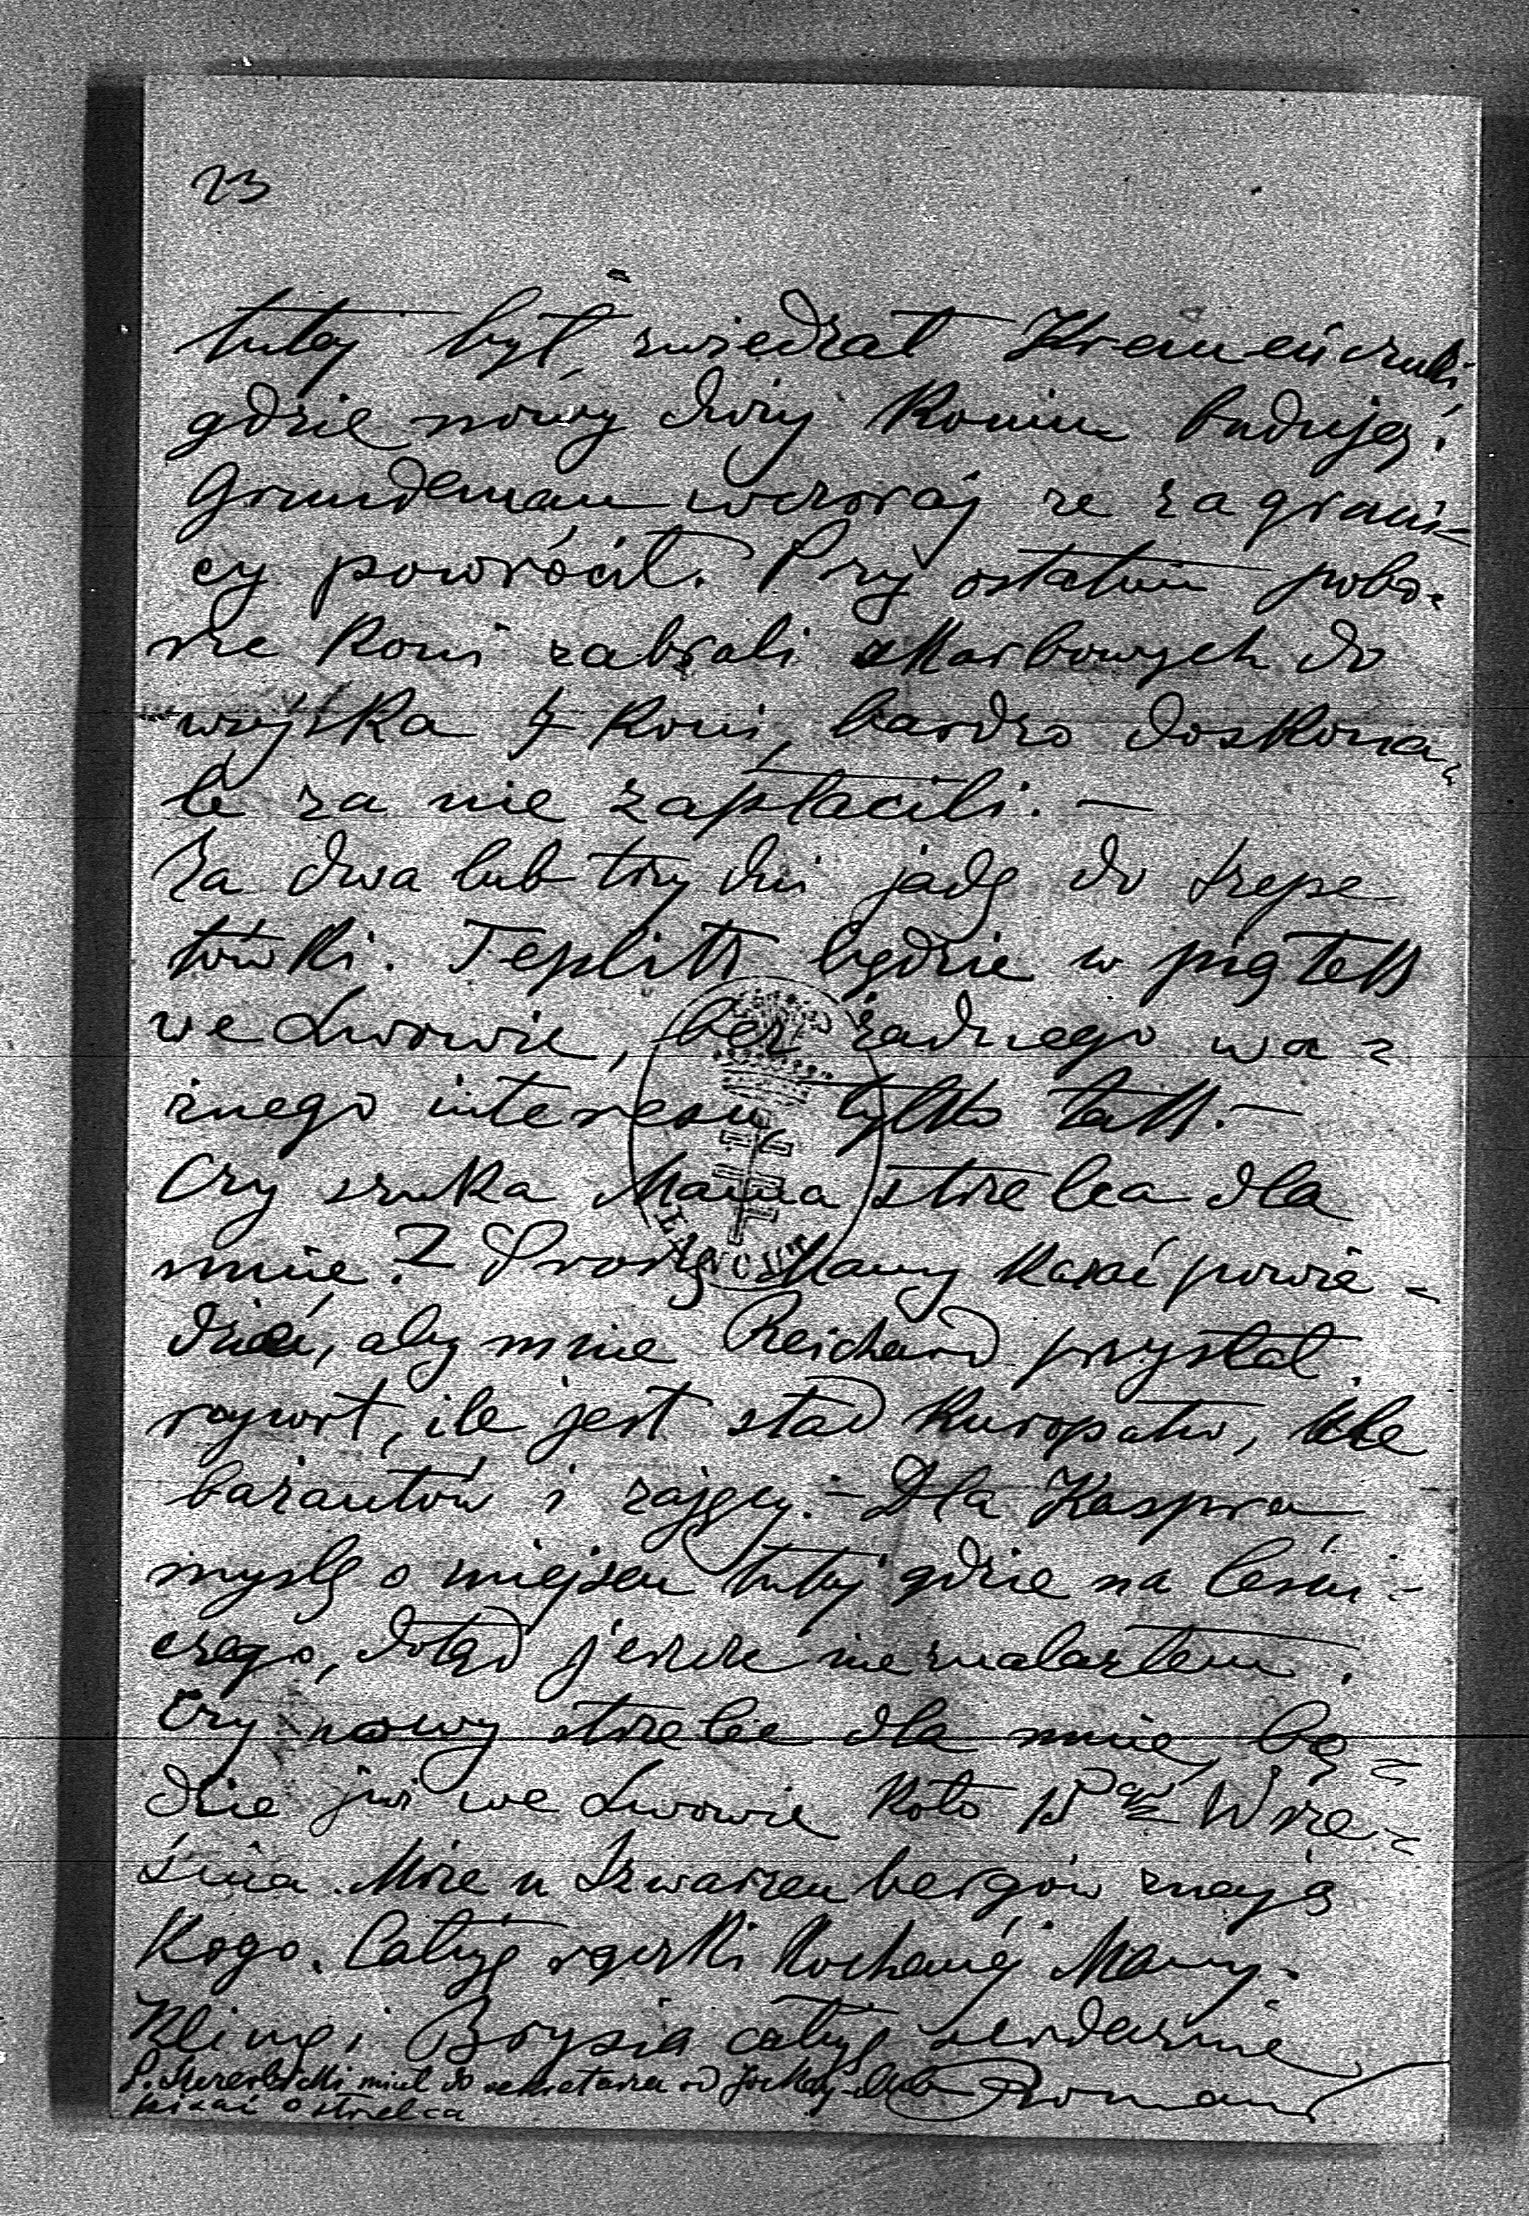 23
tutaj był, zwiedzał Kremeńczuki
gdzie nowy dwór Komin budują.
Grundeman wczoraj ze zagrani=
cy powrócił. Przy ostatnim pobo=
rze koni zabrali skarbowych do
wojska 4 koni, bardzo doskona=
le za nie zapłacili. —
Za dwa lub trzy dni jadę do Szepe
tówki. Teplitz będzie w piątek
we Lwowie, bez żadnego wa=
żnego interesu tylko tak. —
Czy szuka Mama strzelca dla
mnie? Proszę Mamy kazać powie-
dzieć, aby mnie Reichard przysłał
raport, ile jest stad kuropatw, ile
bażantów i zajęcy. — Dla Kaspra
myślę o miejscu tutaj gdzie na leśni-
czego, dotąd jeszcze nie znalazłem.
Czy nowy strzelec dla mnie, bę=
dzie już we Lwowie koło 15go Wrze=
śnia. Może u Szwarzenbergów znają
kogo. Całuję rączki kochanej Mamy.
i Borysia całuję serdecznie
Roman
P. miał do sekretarza od Jockey-Club
pisać o strzelca
ŁAŃCUT